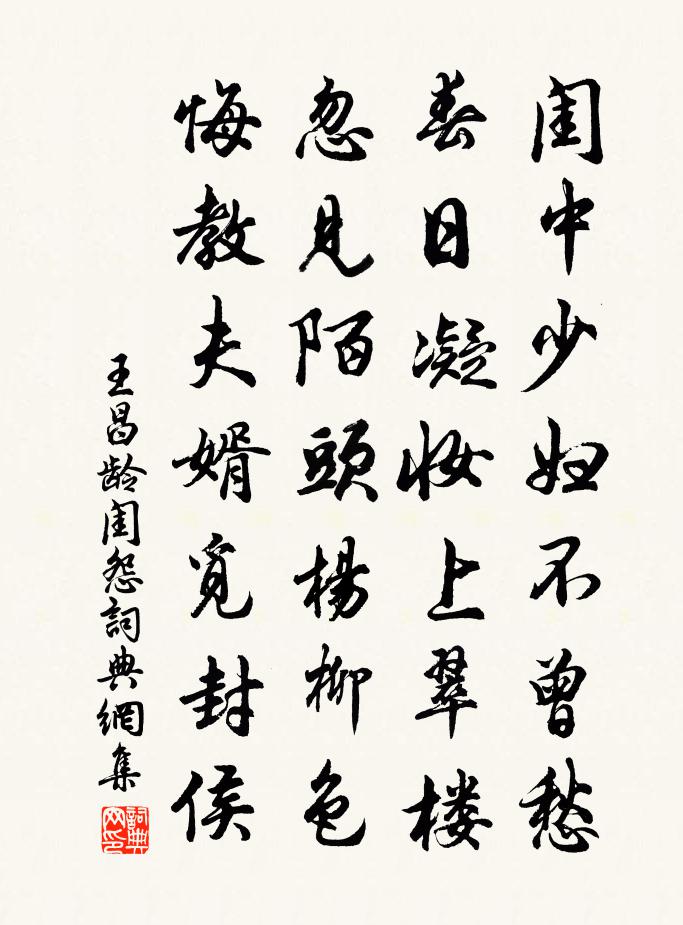 闺中少妇不曾愁
春日凝妆上翠楼
忽见陌頭楊柳色
悔教夫婿觅封侯
王昌龄闺怨詞典網集
詞典
网印